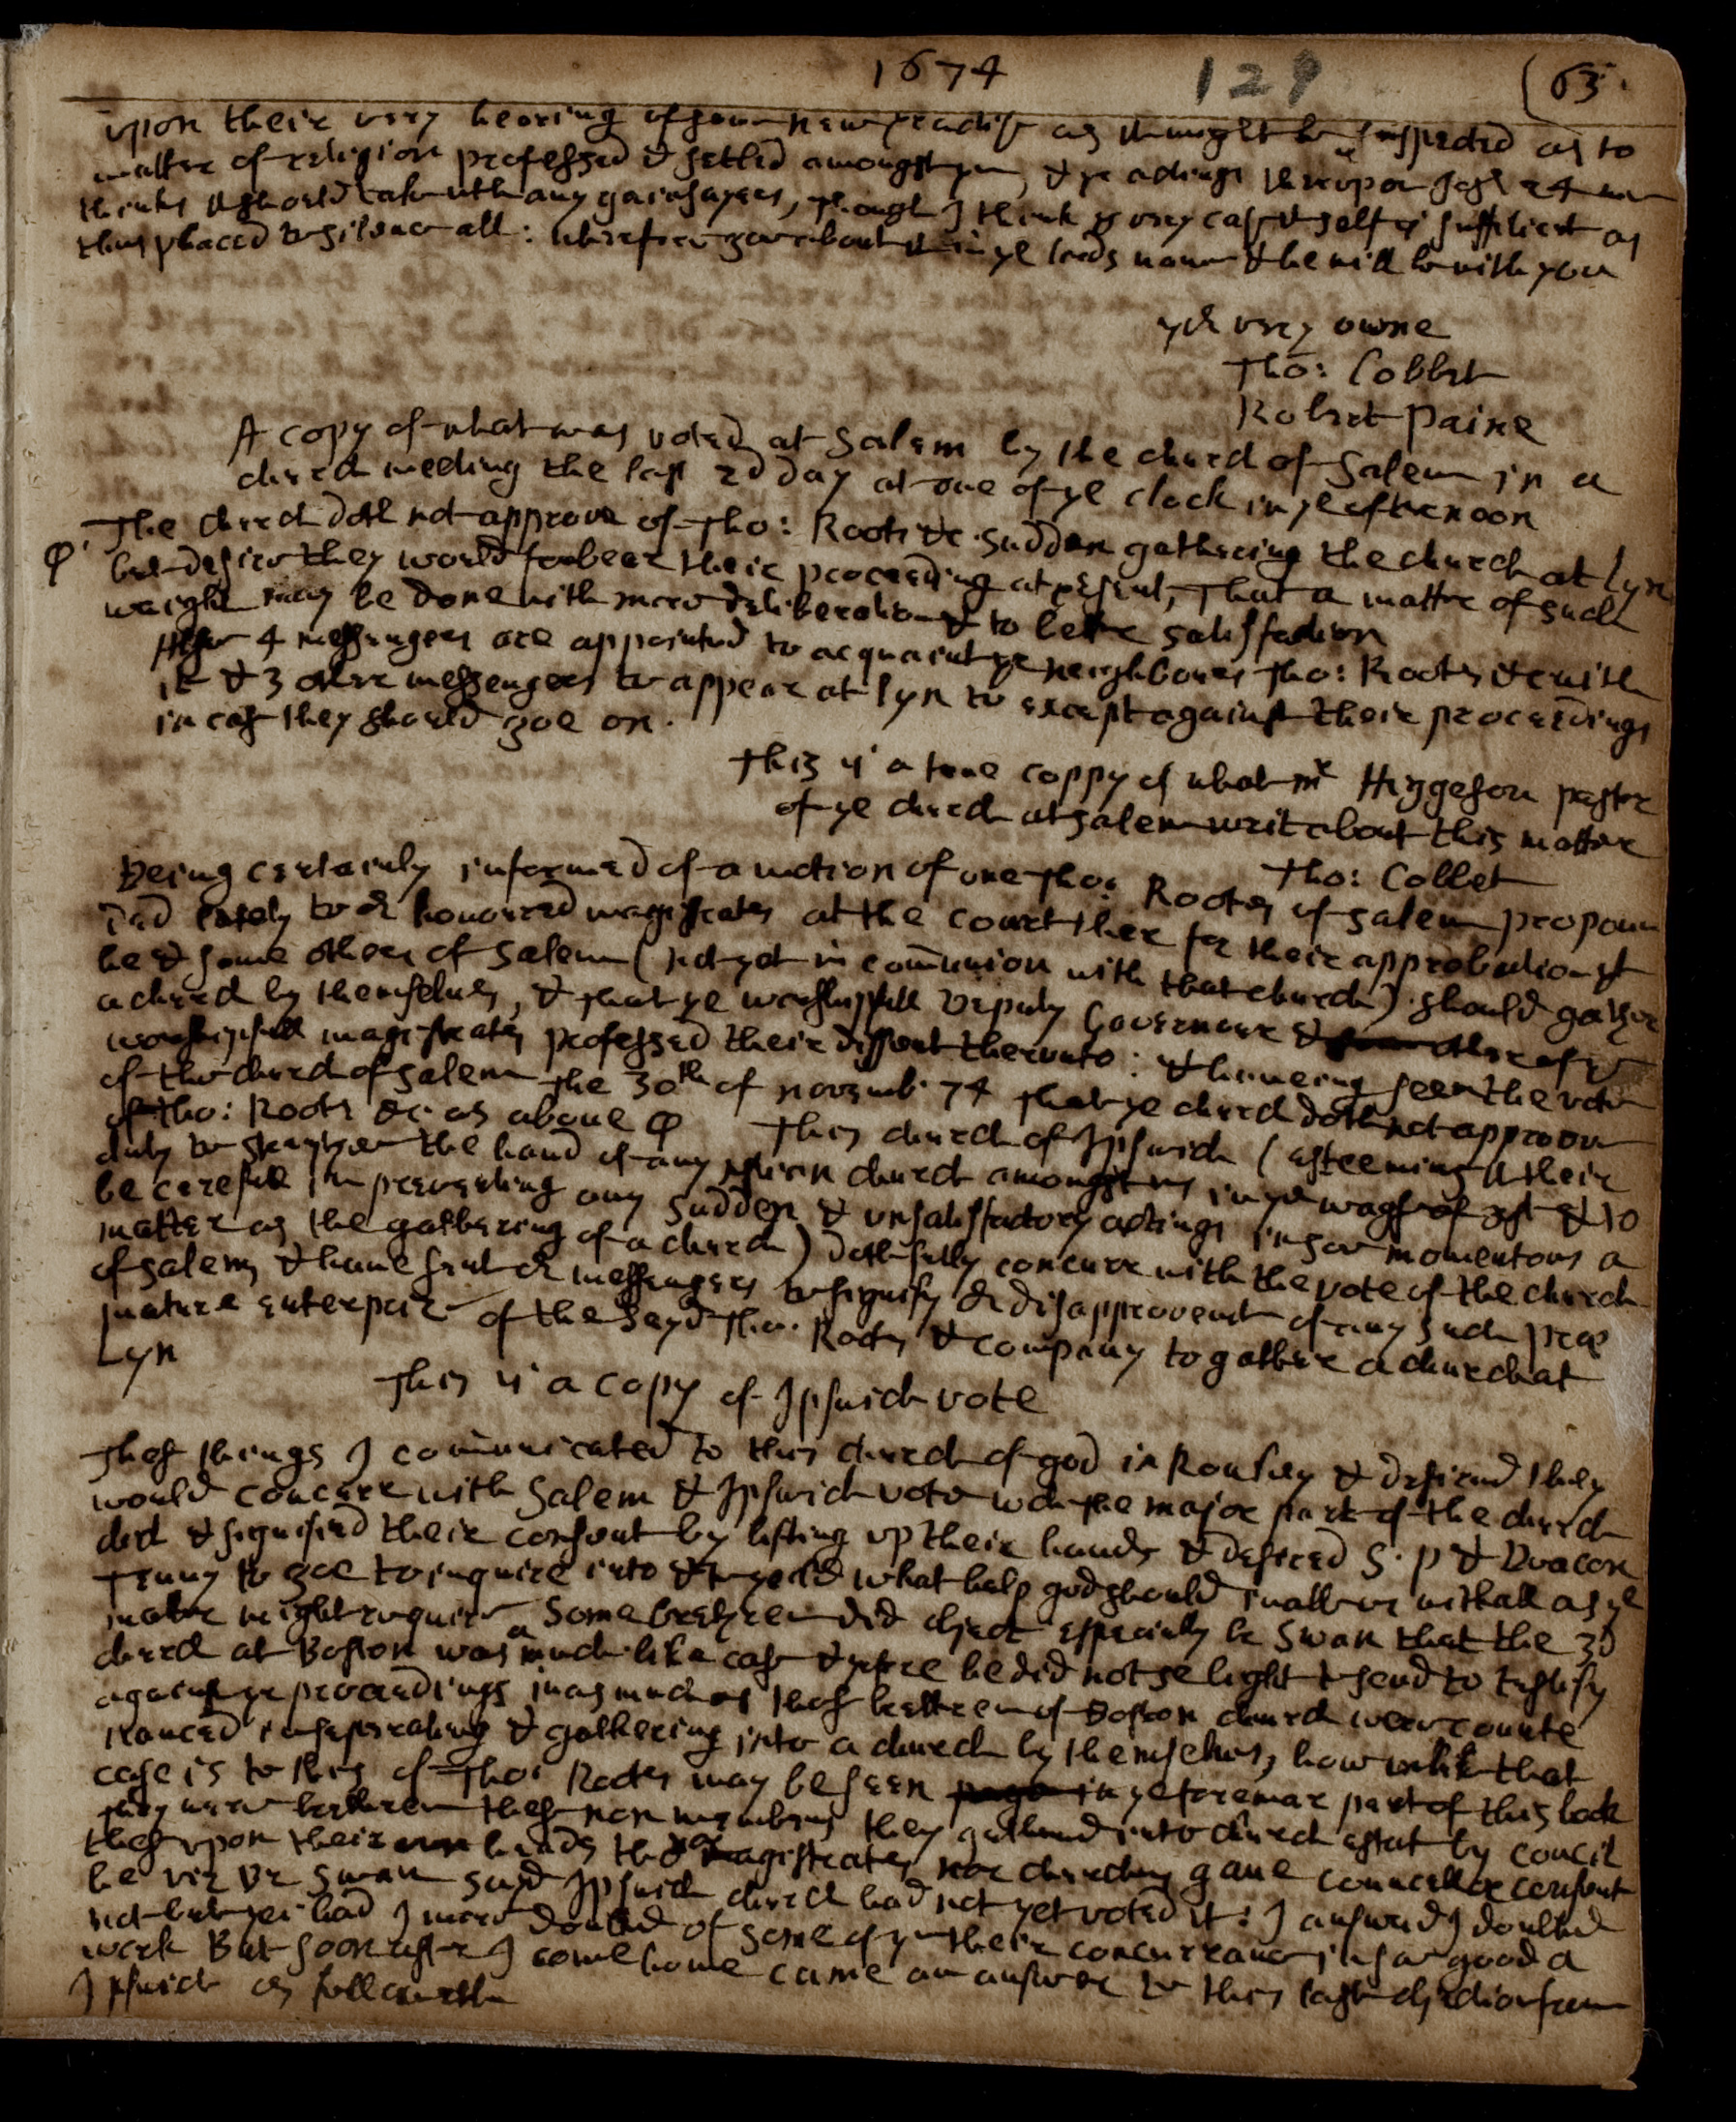 1674 129 (63.
upon their very hearing of some new practise as might be suspected as to
matter of religion professed & setled amongst ym, & ye actings therupon Josh 24
thinks should take with any gainsayers, though I think ye very case it selfe is sufficient as
thus placed to silence all: wherefore goe about it in ye lords name & he will be with you
yor very owne
Tho: Cobbet
Robert Paine
A copy of what was voted at Salem by the church of Salem in a
church meeting the last 2d day at one of ye clock in ye afternoon
The church doth not approve of Tho: Roots &c. sudden gathering the church at Lyn
φ but desire they would forbear their proceeding at present, That a matter of such
weight may be done with more deliberation & to better satisfaction
Also 4 messengers are appointed to acquaint ye neighbours Tho: Roots &c with
it & 3 other messengers to appear at Lyn to except against their proceedings
in case they should goe on.
This is a true coppy of what mr Higgeson pastor
of ye church at Salem writ about this matter
Tho: Cobbet
Being certainly informed of a motion of one Tho: Roots of Salem propoun
ded lately to or honoured magistrates at the court ther for their approbation yt
he & some others of Salem (not yet in com̄union with that church) should gather
a church by themselves, & that ye worshipfull Deputy Governour & other of ye
worshipfull magistrates professed their dissent therunto: & haueing seen the vote
of the church of Salem the 30th of novemb. 74 That ye church doth not approve
of Tho: Roots &c as above φ This church of Ipswich (esteeming it their
duty to strengthen the hand of any sister church amongst us in ye wayes of xt & to
be carefull in preventing any sudden & unsatisfactory actings in soe momentous a
matter as the gathering of a church) doth fully concurr with the vote of the church
of Salem, & haue sent or messengers to signify or disapprovement of any such prae
mature enterprize of the sayd Tho. Roots & company to gather a church at
Lyn
This is a copy of Ipswich vote
Thes things I com̄unicated to this church of god in Rowley & desired they
would concurr with Salem & Ipswich vote wch the major part of the church
did & signifyed their consent by lifting up their hands & desired S. P & Deacon
Tenny to goe to inquire into & to yeeld what help god should inable us withall as ye
matter might require Some brethren did object especially br Swan that the 3d
church at Boston was a much like case & therfore he did not se light to send to testify
against ye proceedings inasmuch as thos brethren of Boston church were counte
nanced in seperating & gathering into a church by themselves, how unlike that
case is to this of Tho: Roots may be seen in ye foremer part of this book
They were brethren thes non members they gathered into church estat by councel
thes upon their heads the magistrates nor churches gave councell or consent
he viz Br Swan sayd Ipswich church had not yet voted it: I answered I doubted
not but yei had I more doubted of some of ym their concurrance in soe good a
work But soon after I come home came an answer to this last objection from
Ipswich as followeth